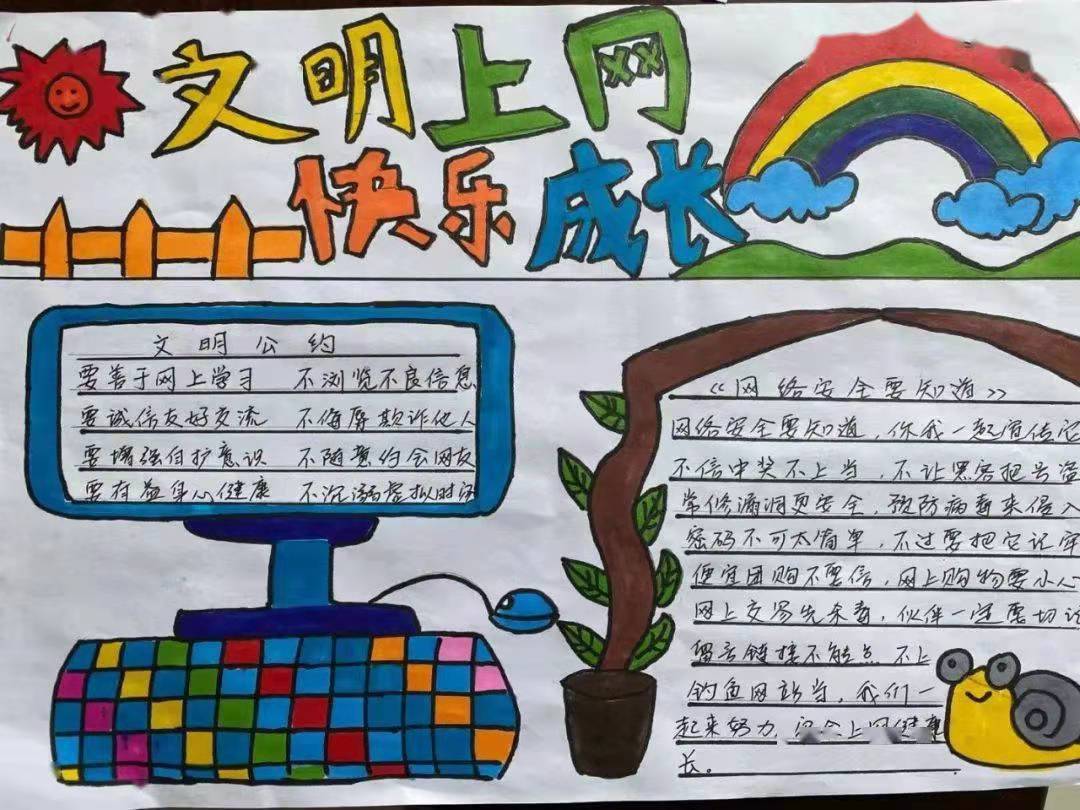 文明上网
快乐成长
文明公约
要善于网上学习 不浏览不良信息
要诚信友好交流 不侮辱欺诈他人
要增强自护意识 不随意约会网友
要有益身心健康 不沉溺虚拟时空
《网络安全要知道》
网络安全要知道，你我一起宣传它
不信中奖不上当，不让黑客把号盗
常修漏洞更安全，预防病毒来侵入
密码不可太简单，不过要把它记牢
便宜团购不要信，网上购物要小心
网上交易先杀毒，伙伴一定要切记
留言链接不能点 不上
钓鱼网站当，我们一
起来努力，上网健康
长。